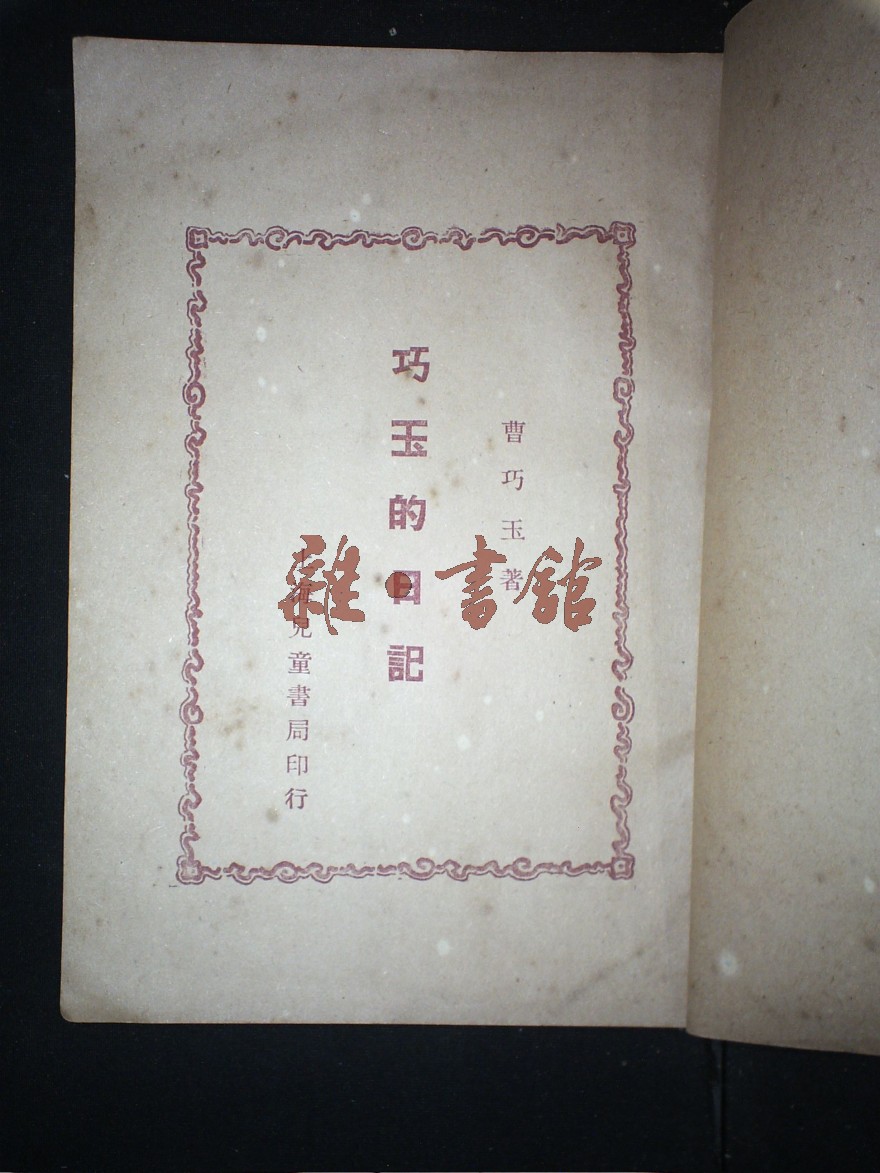 曹巧玉著
巧玉的日記
上海兒童書局印行
雜·書館